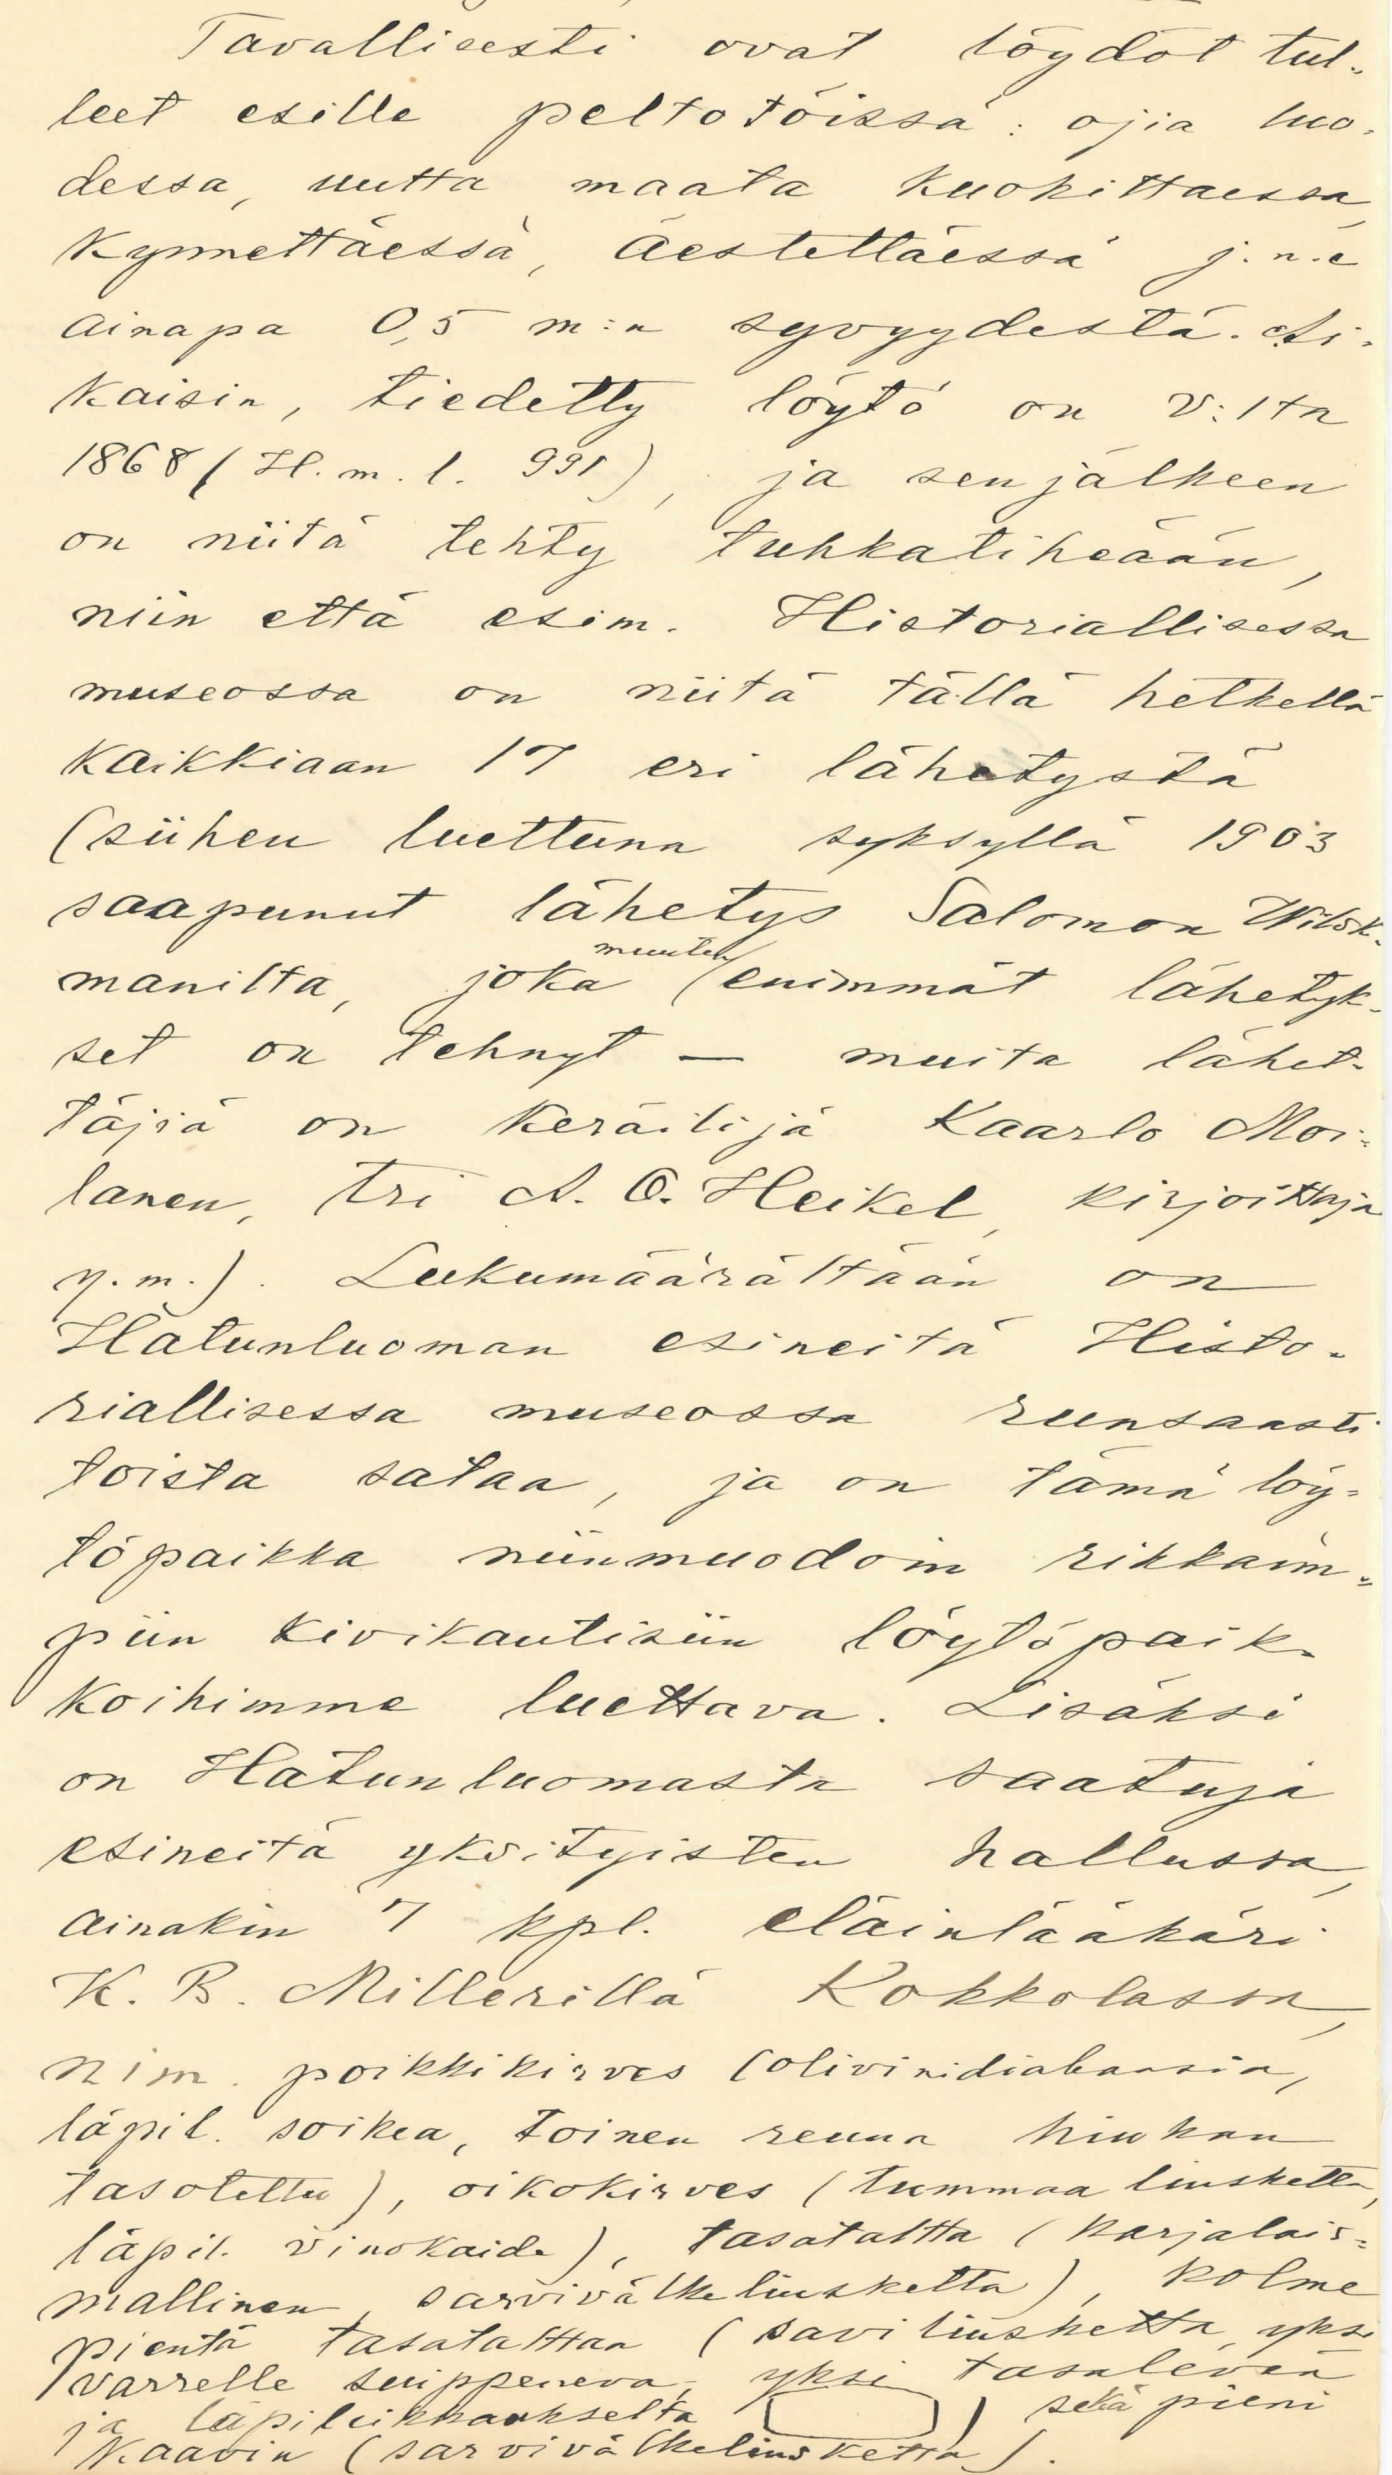 Tavallisesti ovat löydöt tul-
leet esille peltotöissä: ojia luo-
dessa, uutta maata kuokittaessa,
kynnettäessä, äestettäessä j.n.e
ainapa 0,5 m:n syvyydestä. Ai-
kaisin, tiedetty löytö on v:lta
1868 (H.m.l. 991), ja sen jälkeen
on niitä tehty tuhkatiheään,
niin että esim. Historiallisessa
museossa on niitä tällä hetkellä
kaikkiaan 17 eri lähetystä
(siihen luettuna syksyllä 1903
saapunut lähetys Salomon Wilsk-
manilta, joka muuten enimmät lähetyk-
set on tehnyt — muita lähet-
täjiä on keräilijä Kaarlo Moi-
lanen, tri A. O. Heikel, kirjoittaja
y.m.). Lukumäärältään on
Hatunluoman esineitä Histo-
riallisessa museossa runsaasti
toista sataa, ja on tämä löy-
töpaikka niinmuodoin rikkaim-
piin kivikautisiin löytöpaik-
koihimme luettava. Lisäksi
on Hatunluomasta saatuja
esineitä yksityisten hallussa,
ainakin 7 kpl. eläinlääkäri
K. B. Millerillä Kokkolassa,
nim. poikkikirves (olivinidiabaasia,
läpil. soikea, toinen reuna hiukan
tasotettu), oikokirves (tummaa liusketta,
läpil. vinokaide), tasataltta (karjalais-
mallinen, sarvivälkeliusketta), kolme
pientä tasatalttaa (saviliusketta, yksi
varrelle suippeneva, yksi tasaleveä
ja läpileikkaukselta ) sekä pieni
kaavin (sarvivälkeliusketta).